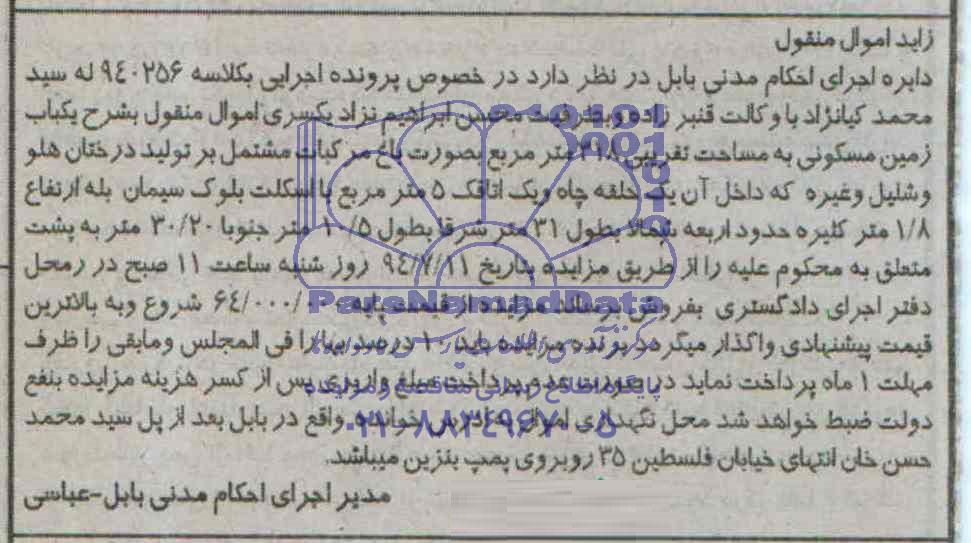 زاید اموال منقول
دایره اجرای احکام مدنی بابل در نظر دارد در خصوص پرونده اجرایی بکلاسه ۹۴۰۲۵۶ له سید
محمد کیانژاد با وکالت قنبر زاده وبطرفیت محسن ابراهیم نژاد یکسری اموال منقول بشرح یکباب
زمین مسکونی به مساحت تقریبی ۳۱۸ متر مربع بصورت باغ مرکبات مشتمل بر تولید درختان هلو
وشلیل وغیره که داخل آن یک حلقه چاه ویک اتاقک ۵ متر مربع با اسکلت بلوک سیمان بله ارتفاع
۱/۸ متر کلیره حدود اربعه شمالا بطول ۳۱ متر شرقا بطول ۱۰/۵ متر جنوبا ۳۰/۲۰ متر به پشت
متعلق به محکوم علیه را از طریق مزایده بتاریخ ۹۴/۷/۱۱ روز شنبه ساعت ۱۱ صبح در رمحل
دفتر اجرای دادگستری بفروش برساند. مزایده از قیمت پایه ۶۴/۰۰۰/ شروع وبه بالاترین
قیمت پیشنهادی واگذار میگردد برنده مزایده باید ۱۰ درصد بها را فی المجلس ومابقی را ظرف
مهلت ۱ ماه پرداخت نماید در صورت عدم پرداخت مبلغ واریزی پس از کسر هزینه مزایده بنفع
دولت ضبط خواهد شد محل نگهداری اموال به آدرس خوانده واقع در بابل بعد از پل سید محمد
حسن خان انتهای خیابان فلسطین ۳۵ روبروی پمپ بنزین میباشد.
مدیر اجرای احکام مدنی بابل-عباسی
ParsNamadData
پایگاه اطلاع رسانی مناقصه و مزایده
۰۲۱-۸۸۳۴۹۶۷۰-۵